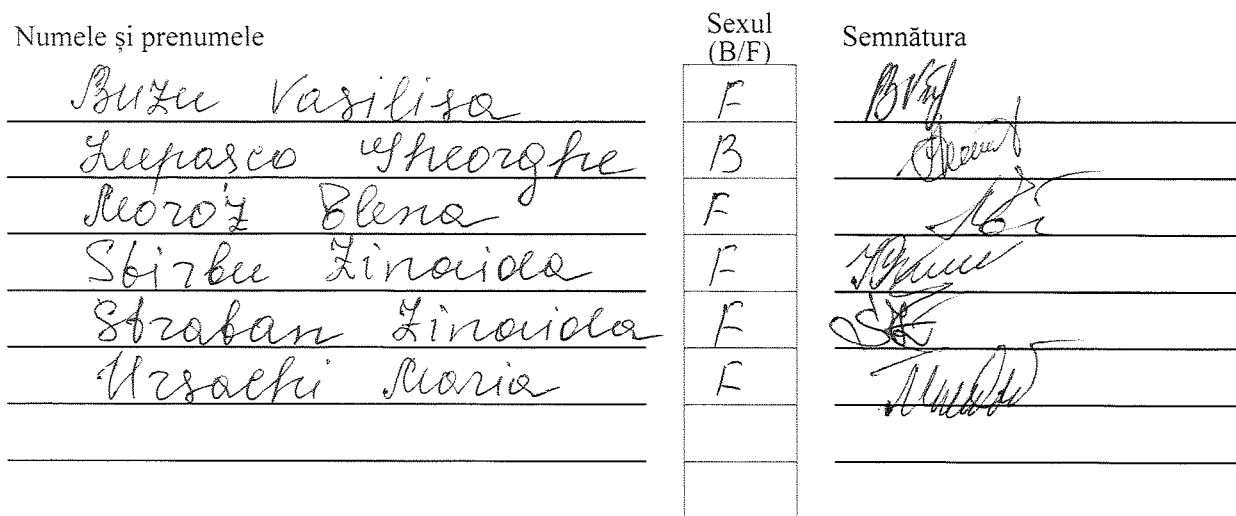 Numele și prenumele Sexul (B/F) Semnătura
Buzu Vasilisa F
Lupasco Gheorghe B
Moroz Elena F
Stirbu Zinaida F
Straban Zinaida F
Ursachi Maria F